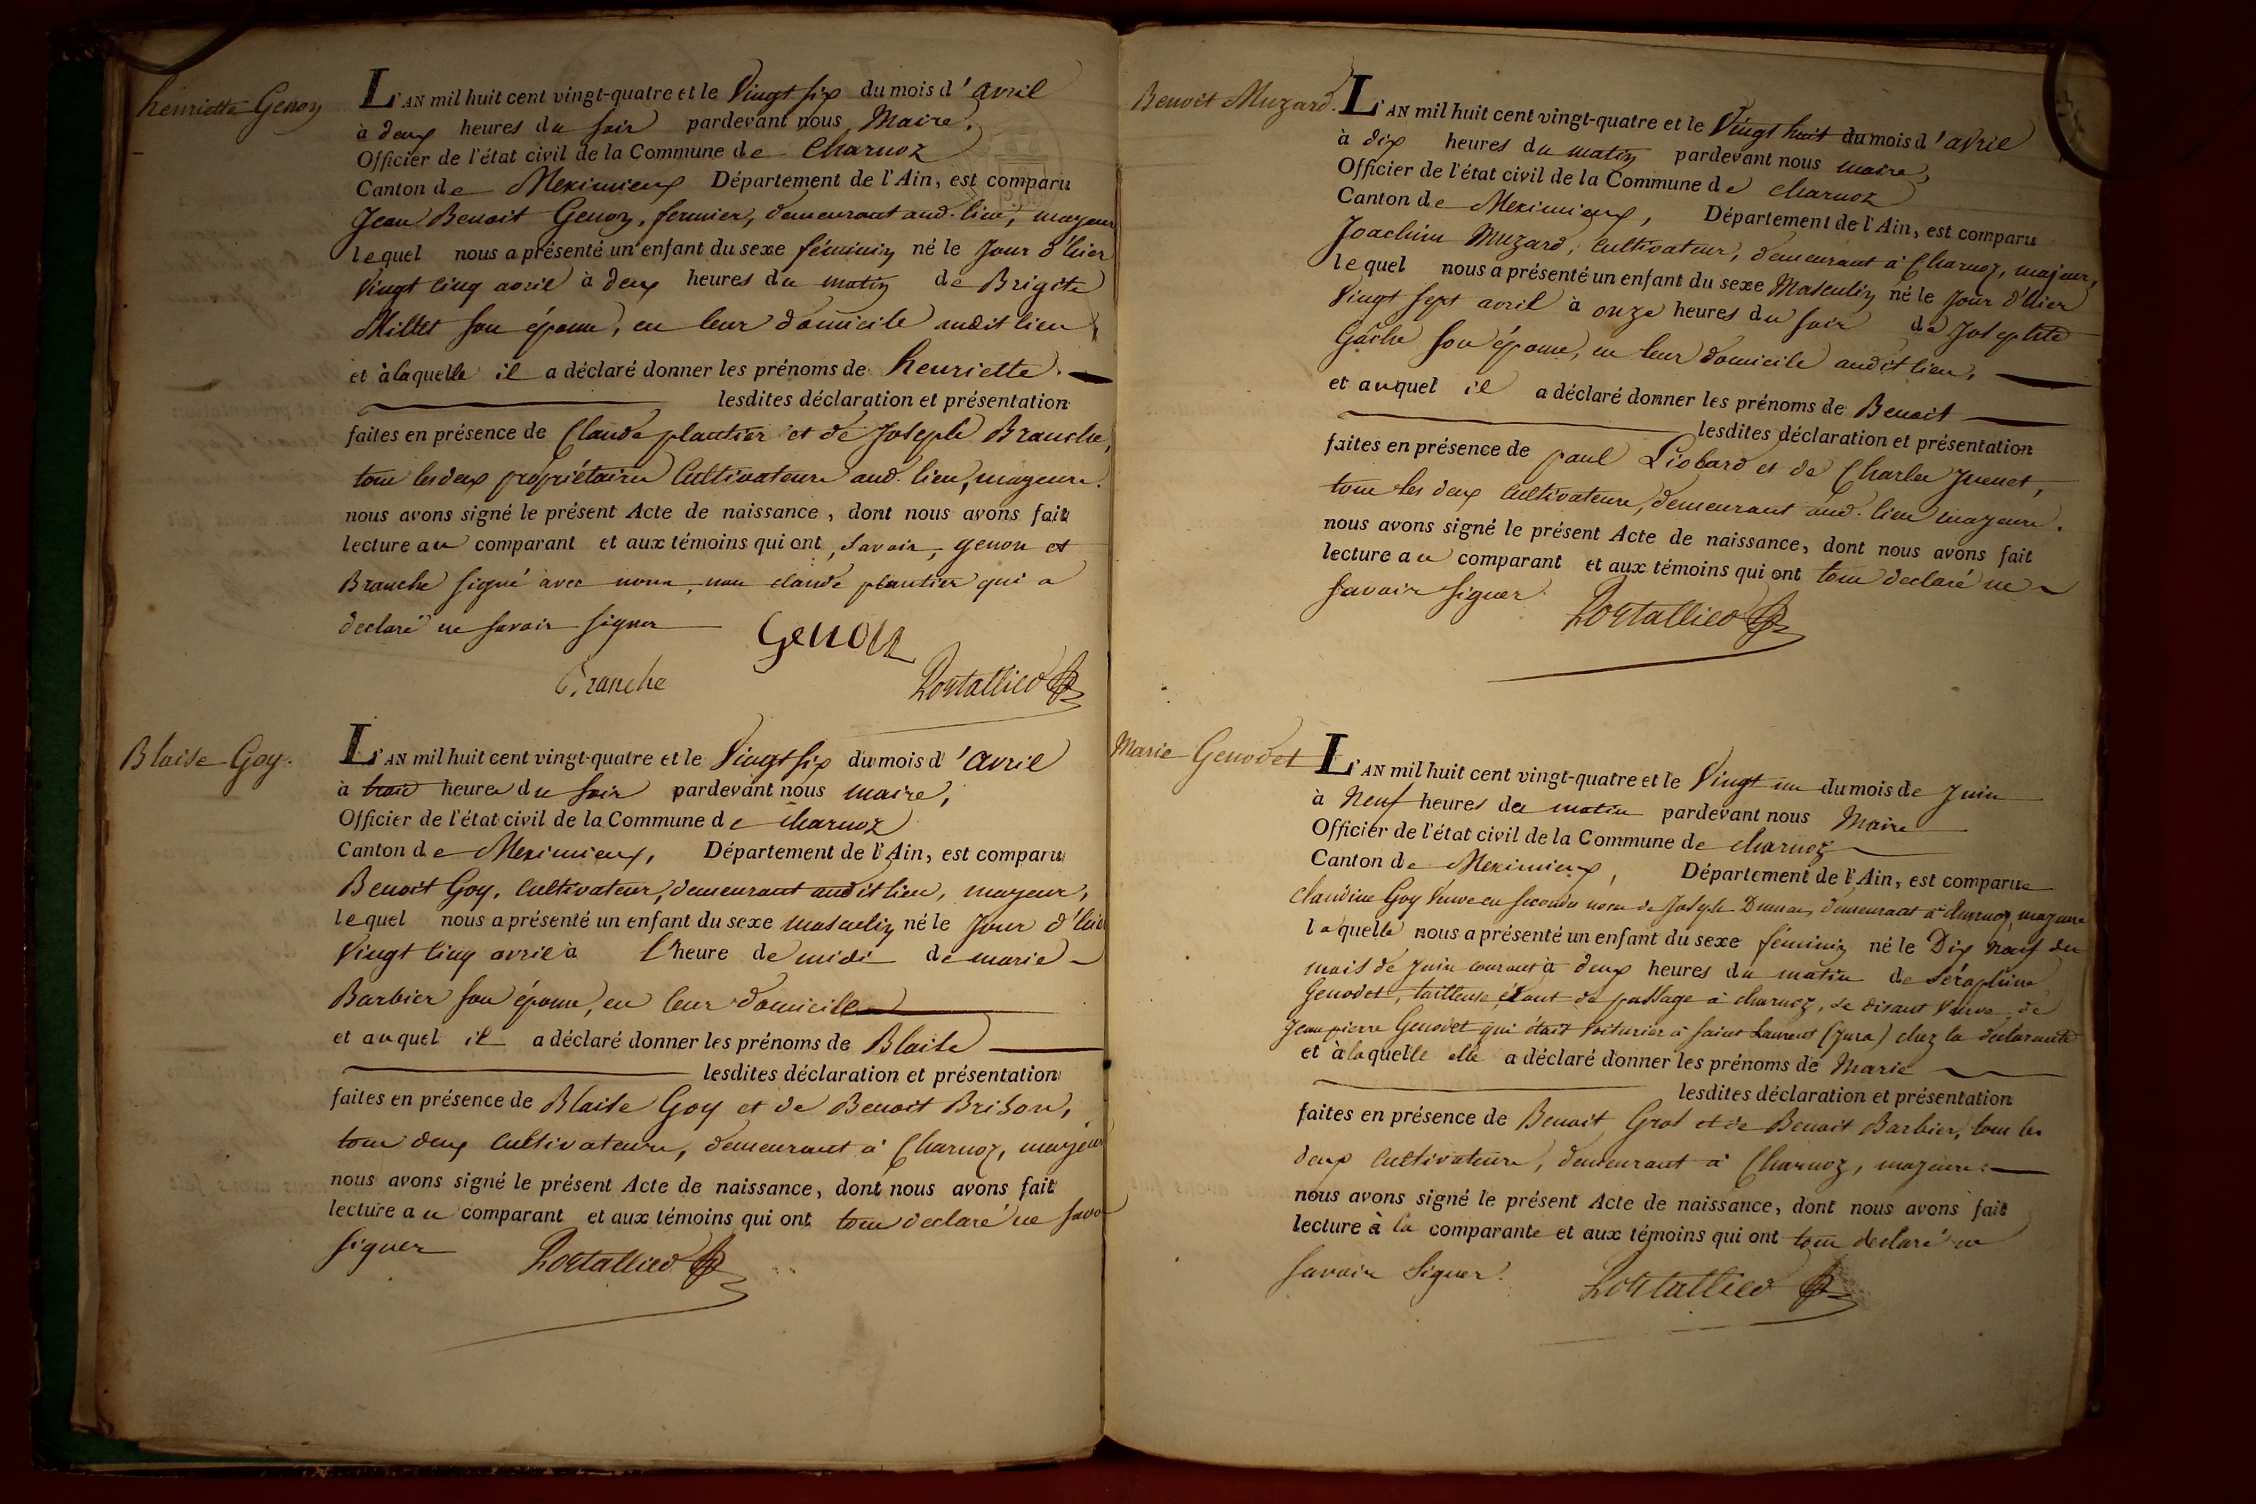 henriette Genon
L'AN mil huit cent vingt-quatre et le Vingt six du mois d'avril
à deux heures du soir pardevant nous Maire,
Officier de l'état civil de la Commune de Charnoz
Canton de Meximieux Département de l'Ain, est comparu
Jean Benoit Genon, fermier, demeurant aud. lieu, majeur
lequel nous a présenté un enfant du sexe féminin né le jour d'hier
Vingt cinq avril à deux heures du matin de Brigite
Millet son épouse, en leur domicile audit lieu
et à laquelle il a déclaré donner les prénoms de henriette.
lesdites déclaration et présentation
faites en présence de Claude plantier et de Joseph Branche,
tous les deux propriétaires Cultivateurs aud. lieu, majeurs.
nous avons signé le présent Acte de naissance, dont nous avons fait
lecture au comparant et aux témoins qui ont, savoir, genon et
Branche signé avec nous, non claude plantier qui a
declaré ne savoir signer
Genon
Branche
Portallier
Blaise Goy.
L'AN mil huit cent vingt-quatre et le Vingt six du mois d'avril
à trois heures du soir pardevant nous maire,
Officier de l'état civil de la Commune de charnoz
Canton de Meximieux, Département de l'Ain, est comparu
Benoit Goy, Cultivateur, demeurant audit lieu, majeur,
lequel nous a présenté un enfant du sexe masculin né le jour d'hier
Vingt cinq avril à l'heure de midi de marie
Barbier son épouse, en leur domicile
et auquel il a déclaré donner les prénoms de Blaise
lesdites déclaration et présentation
faites en présence de Blaise Goy et de Benoit Brison,
tous deux Cultivateurs, demeurant à Charnoz, majeurs
nous avons signé le présent Acte de naissance, dont nous avons fait
lecture au comparant et aux témoins qui ont tous declaré ne savoir
signer
Portallier
Benoit Muzard.
L'AN mil huit cent vingt-quatre et le Vingt huit du mois d'avril
à dix heures du matin pardevant nous maire,
Officier de l'état civil de la Commune de charnoz
Canton de Meximieux, Département de l'Ain, est comparu
Joachim Muzard, Cultivateur, demeurant à Charnoz, majeur,
lequel nous a présenté un enfant du sexe Masculin né le jour d'hier
Vingt sept avril à onze heures du soir de Josephte
Gâche son épouse, en leur domicile audit lieu,
et auquel il a déclaré donner les prénoms de Benoit
lesdites déclaration et présentation
faites en présence de paul Liobard et de Charles Juenet,
tous les deux Cultivateurs, demeurant aud. lieu majeurs.
nous avons signé le présent Acte de naissance, dont nous avons fait
lecture au comparant et aux témoins qui ont tous declaré ne
savoir signer.
Portallier
Marie Genodet
L'AN mil huit cent vingt-quatre et le Vingt un du mois de Juin
à Neuf heures du matin pardevant nous Maire
Officier de l'état civil de la Commune de charnoz
Canton de Meximieux, Département de l'Ain, est comparue
Claudine Goy Veuve en secondes noces de Joseph demeurant à Charnoz, majeure
laquelle nous a présenté un enfant du sexe féminin né le Dix neuf du
mois de Juin courant à deux heures du matin de Séraphine
Genodet, tailleuse, étant de passage à charnoz, se disant Veuve de
Jean pierre Genodet qui était Voiturier à Saint Laurent (Jura) chez la déclarante
et à laquelle elle a déclaré donner les prénoms de Marie
lesdites déclaration et présentation
faites en présence de Benoit Gros et de Benoit Barbier, tous les
deux Cultivateurs, demeurant à Charnoz, majeurs.
nous avons signé le présent Acte de naissance, dont nous avons fait
lecture à la comparante et aux témoins qui ont tous declaré ne
savoir signer.
Portallier